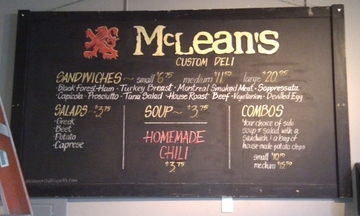 McLean's
CUSTOM DELI
SANDWICHES ~ small $6.75 medium $11.50 large $20.95
Black Forest Ham · Turkey Breast · Montreal Smoked Meat · Soppressata
Capicola · Prosciutto · Tuna Salad · House Roast Beef · Vegetarian · Devilled Egg
SALADS ~ $3.75
Greek
Beet
Potato
Caprese
SOUP ~ $3.75
HOMEMADE
CHILI
$3.75
COMBOS
Your choice of
soup or salad with a
sandwich & a bag of
house-made potato chips
small
medium